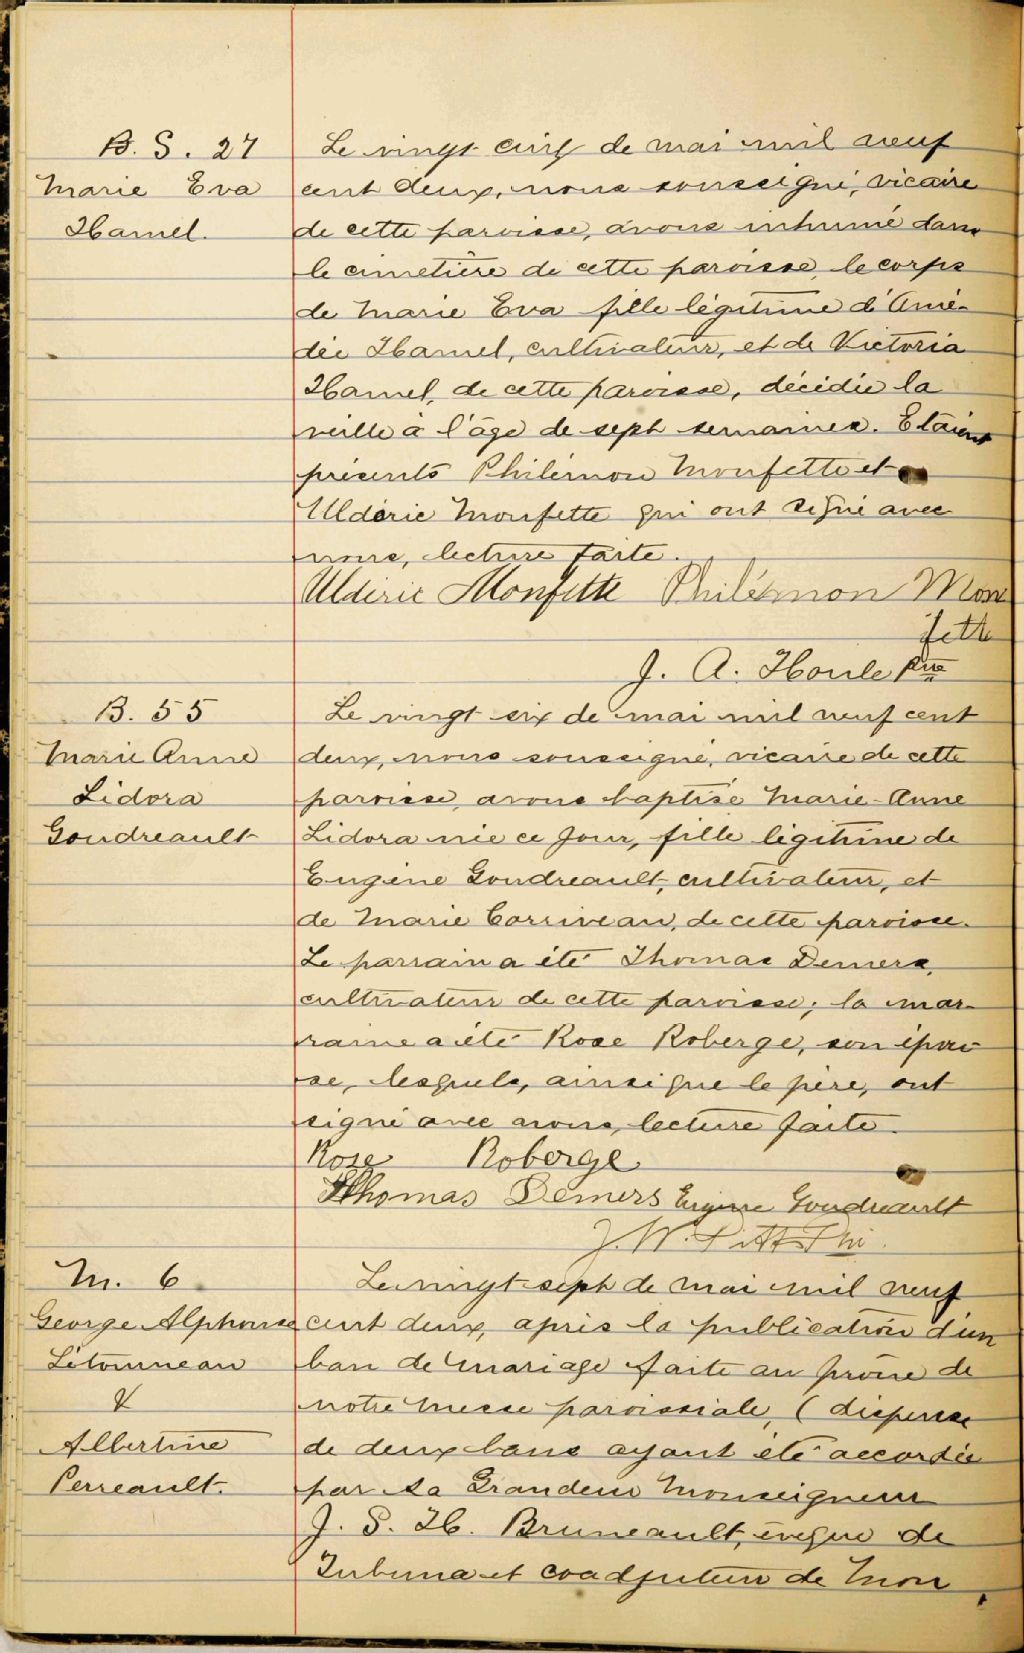 B. S. 27
Marie Eva
Hamel.
Le vingt cinq de mai mil neuf
cent deux, nous soussigné, vicaire
de cette paroisse, avons inhumé dans
le cimetière de cette paroisse, le corps
de Marie Eva fille légitime d'Amé-
dée Hamel, cultivateur, et de Victoria
Hamel, de cette paroisse, décédée la
veille à l'âge de sept semaines. Etaient
présents Philémon Monfette et
Uldéric Monfette qui ont signé avec
nous, lecture faite.
Uldéric Monfette Philémon Mon
fette
J. A. Houle Ptre
B. 55
Marie Anne
Lidora
Goudreault
Le vingt six de mai mil neuf cent
deux, nous soussigné, vicaire de cette
paroisse, avons baptisé Marie-Anne
Lidora née ce jour, fille légitime de
Eugène Goudreault, cultivateur, et
de Marie Corriveau, de cette paroisse.
Le parrain a été Thomas Demers,
cultivateur de cette paroisse; la mar-
raine a été Rose Roberge, son épou-
se, lesquels, ainsi que le père, ont
signé avec nous, lecture faite.
Rose Roberge
Thomas Demers Eugène Goudreault
J. W.
M. 6
George Alphonse
Létourneau
&
Albertine
Perreault.
Le vingt-sept de mai mil neuf
cent deux, après la publication d'un
ban de mariage faite au prône de
notre messe paroissiale, (dispense
de deux bans ayant été accordée
par Sa Grandeur Monseigneur
J. S. H. Bruneault, évêque de
Tubuna et coadjuteur de Mon